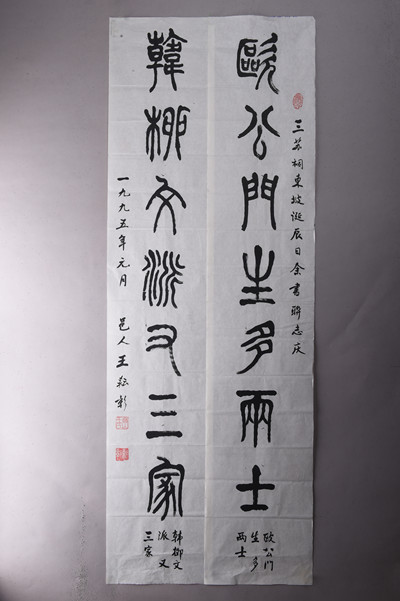 三苏祠東坡诞辰日余書聯志庆
歐公門生多兩士
欧公門
生多
两士
韓柳文派又三家
韩柳文
派又
三家
一九九五年元月 邑人王